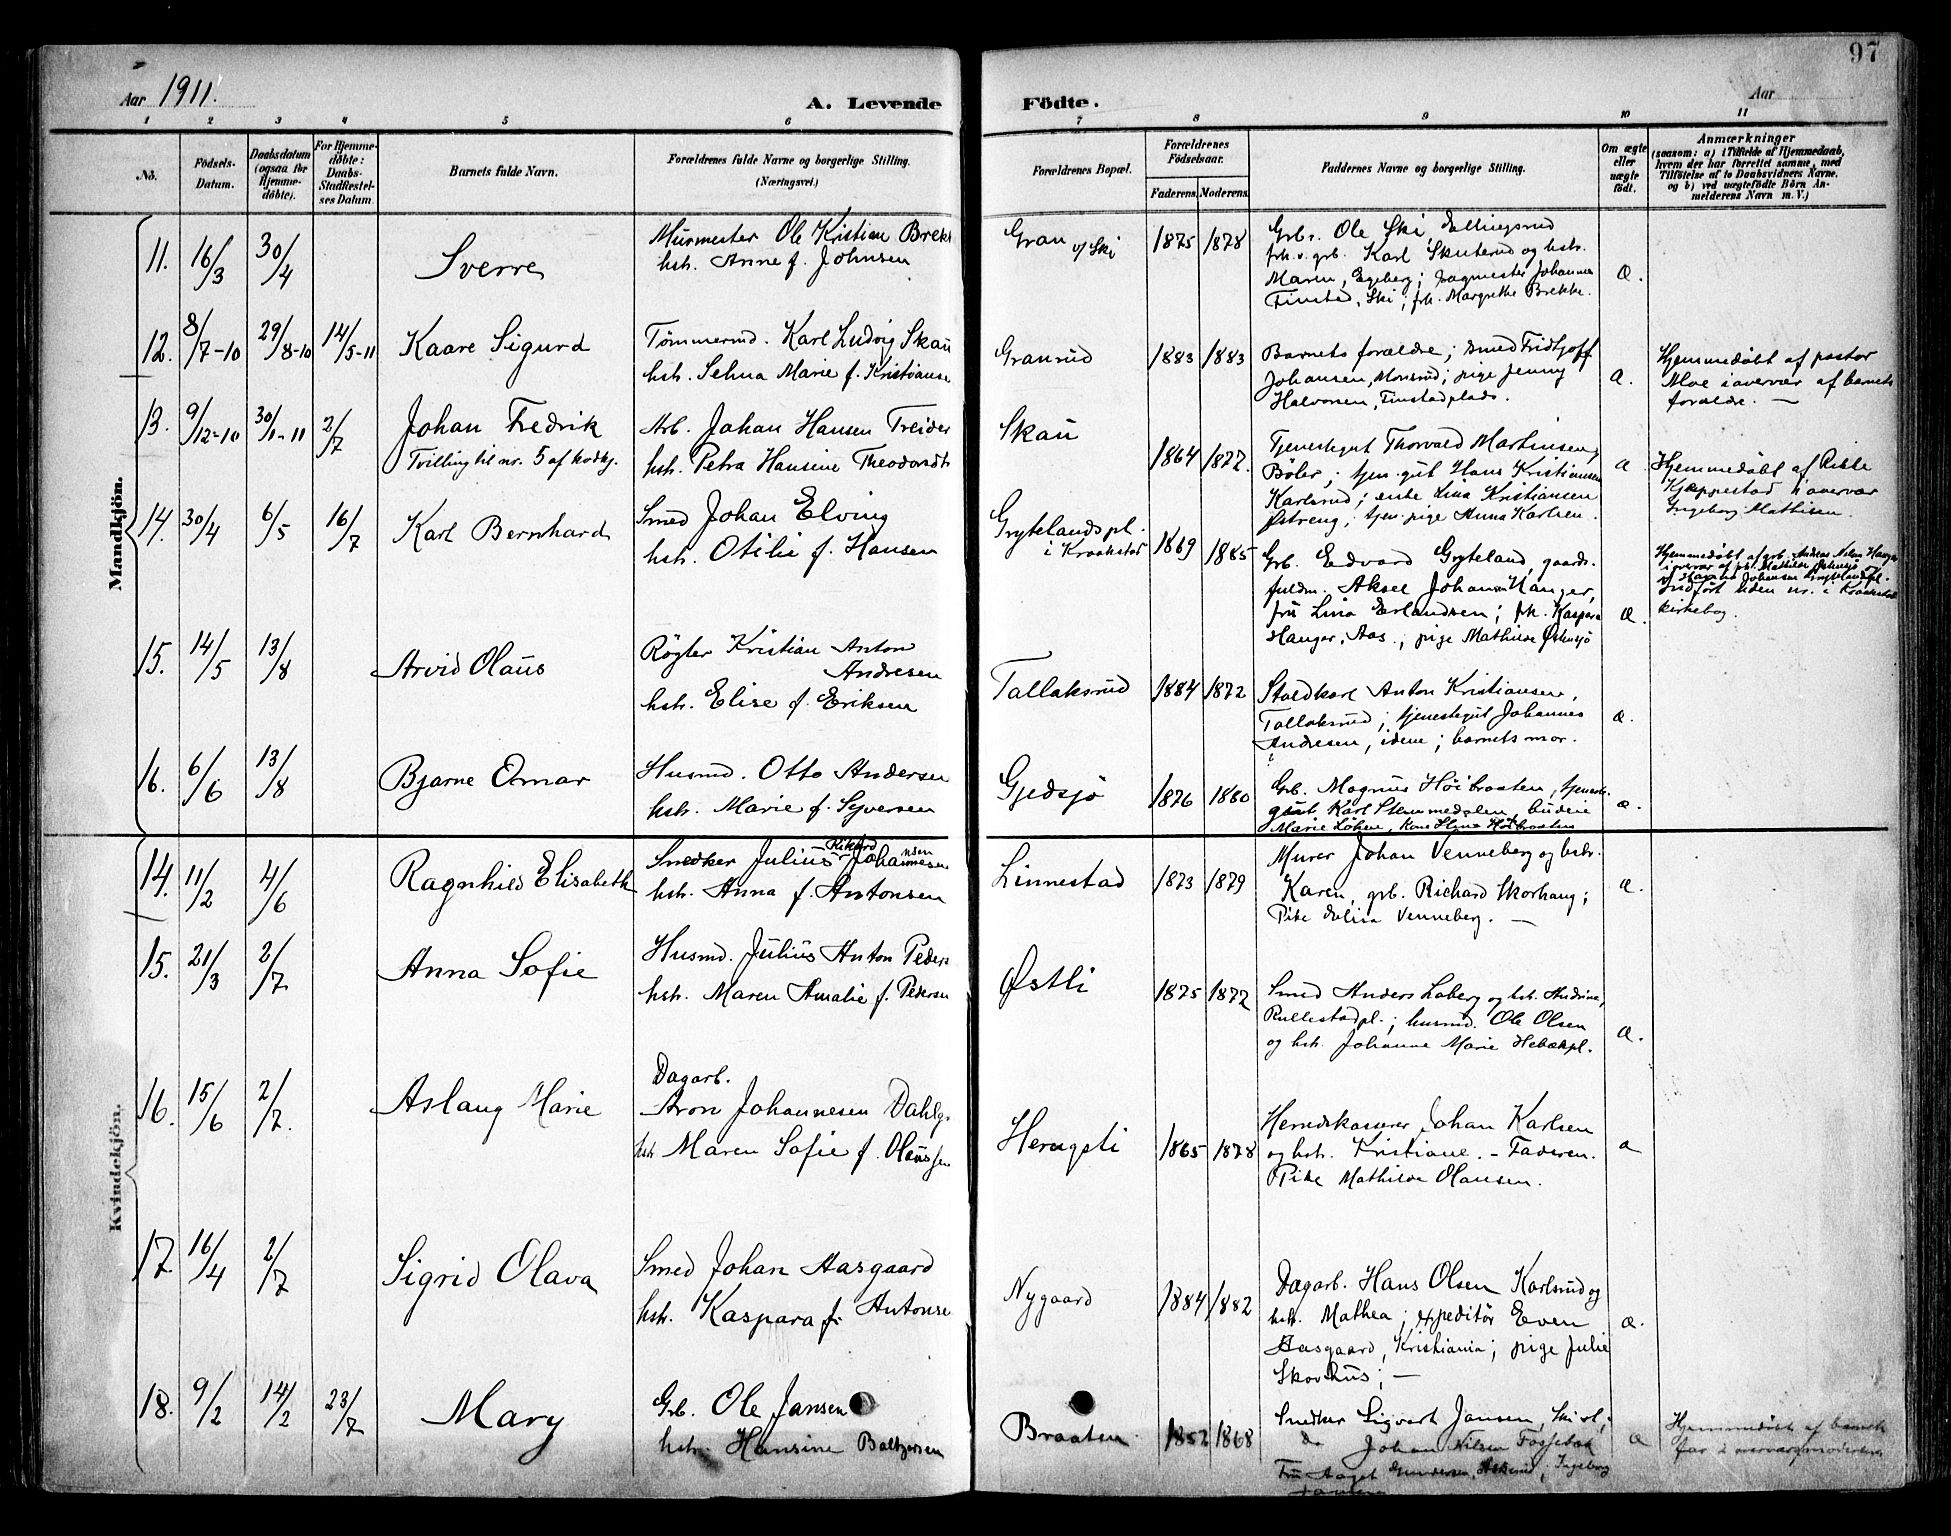 97
Aar 1911.
A. Levende Födte.
Aar
1 2 3 4 5 6 7 8 9 10 11
No.
Födsels-Datum.
Daabsdatum (ogsaa for Hjemme-döbte).
For Hjemme-döbte: Daabs-Stadfæstel-ses Datum.
Barnets fulde Navn.
Forældrenes fulde Navne og borgerlige Stilling.
(Næringsvei.)
Forældrenes Bopæl.
Forældrenes Födselsaar.
Faderens. Moderens.
Faddernes Navne og borgerlige Stilling.
Om ægte eller uægte födt.
Anmærkninger
(saasom: a) i Tilfælde af Hjemmedaab,
hvem der har forrettet samme, med
Tilföielse af to Daabsvidners Navne,
og b) ved uægtefödte Börn An-
melderens Navn m. V.)
Mandkjön.
11. 16/3 30/4 Sverre
Murmester Ole Kristian Brekk
hstr. Anne f. Johnsen
Gran v/ Ski 1875 1878
Grbr. Ole Ski, Ellingsrud
frh. v. grb. Karl Skuterud og hstr.
Maren, Egeberg; Johannes
Finstad, Ski; frk. Margrethe Brekke.
æ.
12. 8/7-10 29/8-10 14/5-11 Kaare Sigurd
Tømmermd. Karl Ludvig Skau
hstr. Selma Marie f. Kristianse
Granrud 1883 1883
Barnets forældre; smed Fridtjoff
Johansen, Monsrud; pige Jenny
Halvorsen, Finstadplads.
æ.
Hjemmedøbt af pastor
Moe i overvær af barnets
forældre. —
13. 9/12-10 30/1-11 2/7 Johan Fredrik
Tvilling til nr. 5 af kvdkj.
Arb. Johan Hansen Treider
hstr. Petra Hansine Theodorsdt
Skau 1864 1872.
Tjenestegut Thorvald Martinsen,
Bøler; tjen. gut Hans Kristiansen
Karlsrud; enke Lina Kristiansen
Østreng; tjen. pige Anna Karlsen.
æ
Hjemmedøbt af Rikke
Kjeppestad i overvær
Ingeborg Mathisen.
14. 30/4 6/5 16/7 Karl Bernhard
Smed Johan Elving
hstr. Otilie f. Hansen
Grytelandspl. i Kraakstad 1869 1885
Grb. Edvard Gryteland, gaards-
fuldm. Aksel Johansen Hanger,
fru Lina Erlandsen; frk. Kaspara
Hanger, Aas.; pige Mathilde Østensjø
æ.
Hjemmedøbt af grb. Andreas Nilsen
i overvær af Mathilde Østensjø og
Johansen Grytelandpl.
Indført uden nr. i Kraakstad
kirkebog.
15. 14/5 13/8 Arvid Olaus
Røgter Kristian Anton
Andresen
hstr. Elise f. Eriksen
Tallaksrud 1884 1872
Staldkarl Anton Kristiansen,
Tallaksrud; tjenestegut Johannes
Andresen, idem; barnets mor.
æ.
16. 6/6 13/8 Bjarne Omar
Husmd. Otto Andersen
hstr. Marie f. Syversen
Gjedsjø 1876 1880
Grb. Magnus Høibraaten, tjeneste-
gut Karl Stemmedalen, budeie
Marie Løken, Kone Stina Høibraaten
æ.
Kvindekjön.
14. 11/2 4/6 Ragnhild Elisabeth
Rikard nsen
Snedker Julius Johannesen
hstr. Anna f. Antonsen
Linnestad 1873 1879
Murer Johan Venneberg og hstr.
Karen, grb. Richard Skorhaug;
Pike Venneberg. —
æ.
15. 21/3 2/7 Anna Sofie
Husmd. Julius Anton Peders
hstr. Maren Amalie f. Pedersn
Østli 1875 1872
Smed Anders Laberg og hst. Andrine,
Rullestadpl.; husmd. Ole Olsen
og hstr. Johanne Marie Hebækpl.
æ.
16. 15/6 2/7. Aslaug Marie
Dagarb.
Aron Johannesen Dahlg.
hstr Maren Sofie f. Olaussen
Herugsti 1865 1878
Herredskasserer Johan Karlsen
og hstr. Kristiane. – Faderen.
Pike Mathilde Olausen.
æ
17. 16/4 2/7 Sigrid Olava
Smed Johan Aasgaard
hstr. Kaspara f. Antonse
Nygaard 1884 1882
Dagarb. Hans Olsen Karlsrud og
hstr. Mathea; expeditør Even
Aasgaard, Kristiania; pige Julie
Skovhus; —
æ.
18. 9/2 14/2 23/7 Mary
Grb. Ole Jansen
hstr. Hansine Baltzersen
Braaten 1852 1868
Snedker Sigvart Jansen, Ski st.;
do Johan Nilsen Fosssebæk
Fru Aagot Gundersen, Ingeborg
æ
Hjemmedøbt af barnets
far i overvær moderen